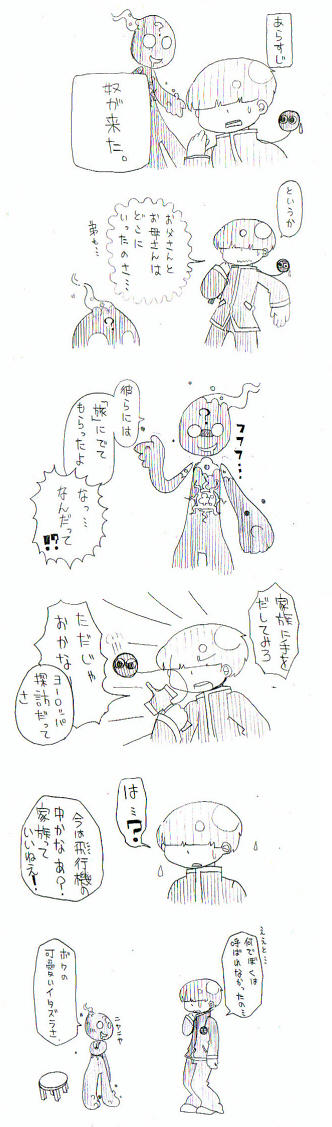 あらすじ
奴が来た。
というか
お父さんと
お母さんは
どこに
いったのさ…
弟も…
彼らには
「旅」にでて
もらったよ
フフフ…
なっ…
なんだって
!?
家族に手を
だしてみろ
ただじゃ
おかな
ヨーロッパ
探訪だって
さ
は…?
今は飛行機の
中かなあ?
家族って
いいねえ!
ええと…
何でぼくは
呼ばれなかったの…
ニヤニヤ
ボクの
可愛いイタズラさ